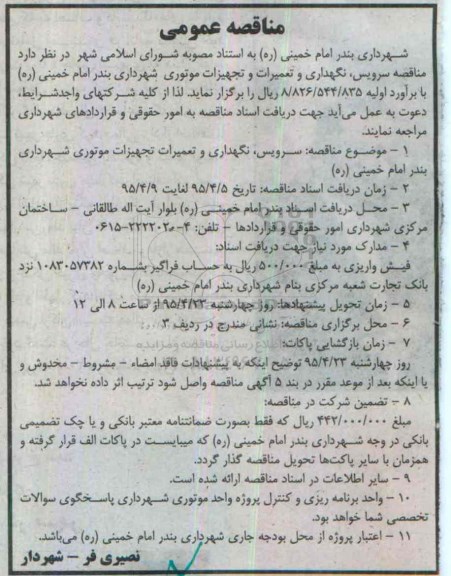 مناقصه عمومی
شهرداری بندر امام خمینی (ره) به استناد مصوبه شورای اسلامی شهر در نظر دارد
مناقصه سرویس، نگهداری و تعمیرات و تجهیزات موتوری شهرداری بندر امام خمینی (ره)
با برآورد اولیه ۸/۸۲۶/۵۴۴/۸۳۵ ریال را برگزار نماید. لذا از کلیه شرکتهای واجدشرایط،
دعوت به عمل می‌آید جهت دریافت اسناد مناقصه به امور حقوقی و قراردادهای شهرداری
مراجعه نمایند.
۱ – موضوع مناقصه: سرویس، نگهداری و تعمیرات تجهیزات موتوری شهرداری
بندر امام خمینی (ره)
۲ – زمان دریافت اسناد مناقصه: تاریخ ۹۵/۴/۵ لغایت ۹۵/۴/۹
۳ – محل دریافت اسناد بندر امام خمینی (ره) بلوار آیت اله طالقانی – ساختمان
مرکزی شهرداری امور حقوقی و قراردادها – تلفن: ۴-۲۲۲۲۰۲۰-۰۶۱۵
۴ – مدارک مورد نیاز جهت دریافت اسناد:
فیش واریزی به مبلغ ۵۰۰/۰۰۰ ریال به حساب فراگیر بشماره ۱۰۸۳۰۵۷۳۸۲ نزد
بانک تجارت شعبه مرکزی بنام شهرداری بندر امام خمینی (ره)
۵ – زمان تحویل پیشنهادها: روز چهارشنبه ۹۵/۴/۲۳ از ساعت ۸ الی ۱۲
۶ – محل برگزاری مناقصه: نشانی مندرج در ردیف ۳
۷ – زمان بازگشایی پاکات:
روز چهارشنبه ۹۵/۴/۲۳ توضیح اینکه به پیشنهادات فاقد امضاء – مشروط – مخدوش و
یا اینکه بعد از موعد مقرر در بند ۵ آگهی مناقصه واصل شود ترتیب اثر داده نخواهد شد.
۸ – تضمین شرکت در مناقصه:
مبلغ ۴۴۲/۰۰۰/۰۰۰ ریال که فقط بصورت ضمانتنامه معتبر بانکی و یا چک تضمیمی
بانکی در وجه شهرداری بندر امام خمینی (ره) که میبایست در پاکات الف قرار گرفته و
همزمان با سایر پاکت‌ها تحویل مناقصه گذار گردد.
۹ – سایر اطلاعات در اسناد مناقصه ارائه شده است.
۱۰ – واحد برنامه ریزی و کنترل پروژه واحد موتوری شهرداری پاسخگوی سوالات
تخصصی شما خواهد بود.
۱۱ – اعتبار پروژه از محل بودجه جاری شهرداری بندر امام خمینی (ره) می‌باشد.
نصیری فر – شهردار